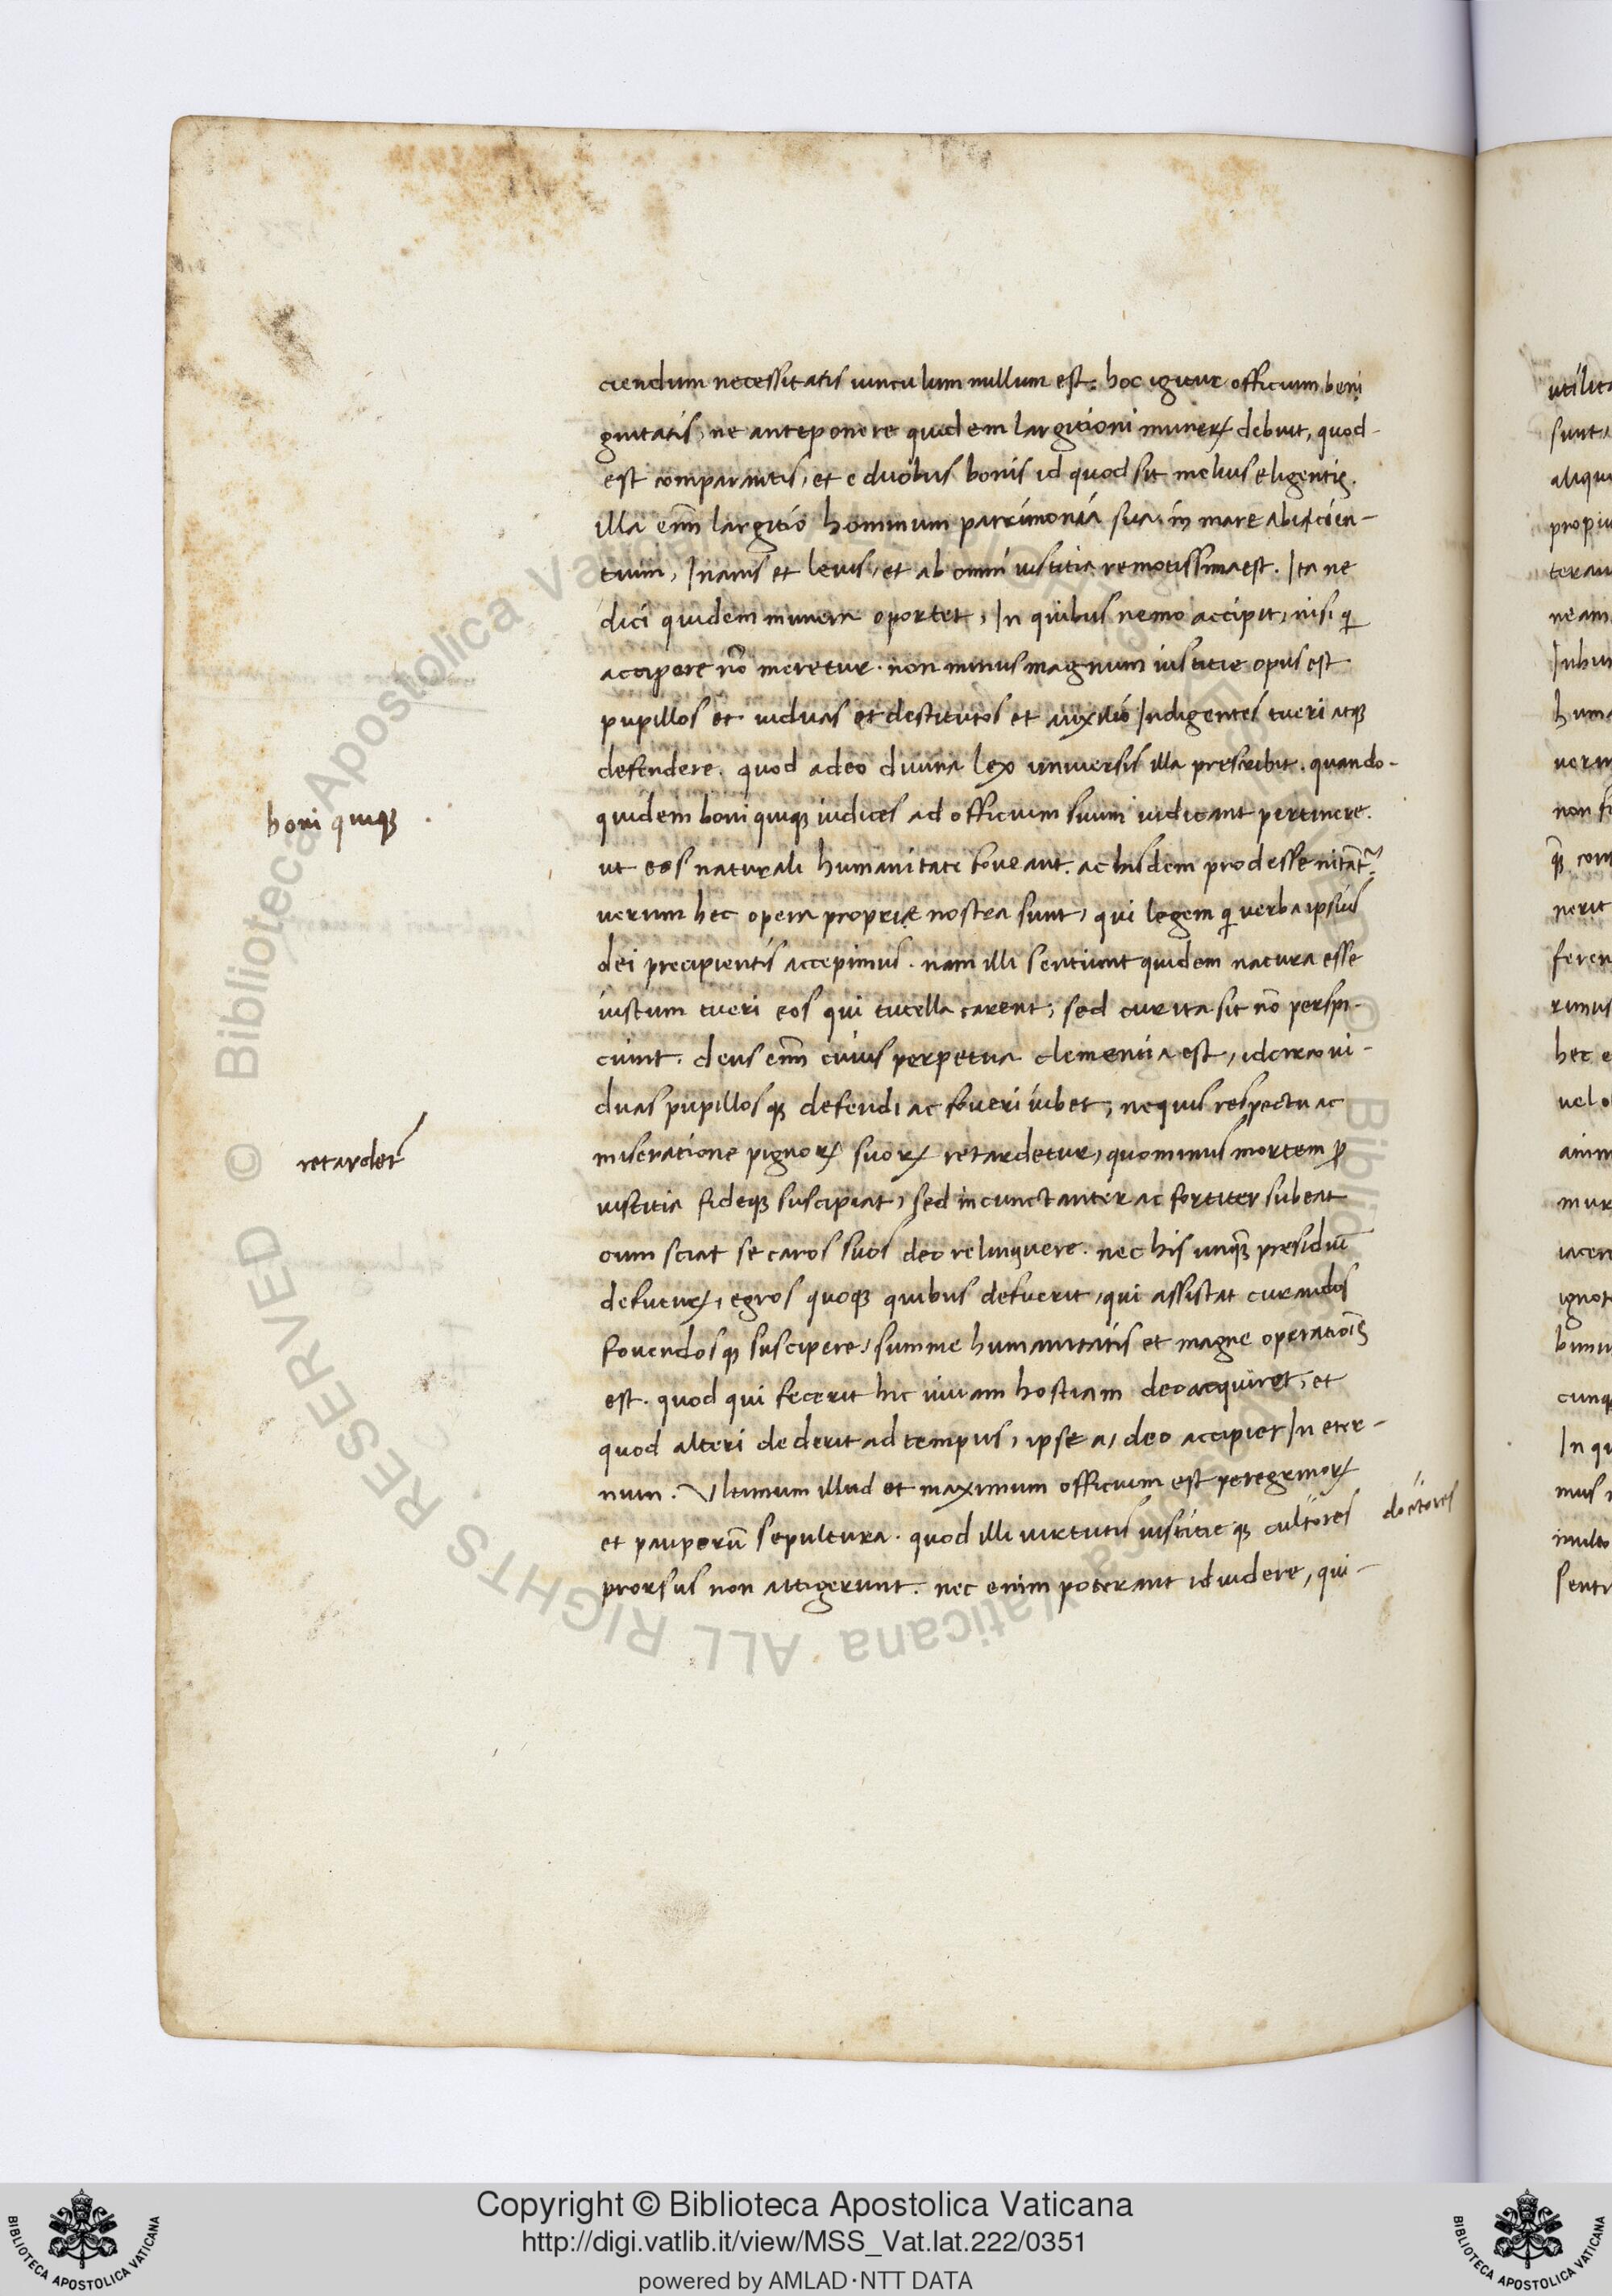 ciendum necessitatis uinculum nullum est. hoc igitur officium beni
gnitatis, ne anteponere quidem largitioni muneꝝ debuit, quod
est comparantis, et e duobus bonis id quod sit melius eligentis.
illa enī largitio hominum patrimonia sua in mare abiicien-
tium, Inanis et leuis, et ab omni iustitia remotissima est. Ita ne
dici quidem munera oportet, In quibus nemo accipit, nisi qi
accipere nō meretur. non minus magnum iustitie opus est
pupillos et uiduas et destitutos et auxilio Indigentes tueri atqꝫ
defendere. quod adeo diuina lex uniuersis illa prescribit. quando-
quidem boni quiqꝫ iudices ad officium suum iudicant pertinere.
ut eos naturali humanitate foueant. ac hisdem prodesse nitāt᷑.
uerum hec opera propriæ nostra sunt, qui legem qi uerba ipsius
dei precipientis accepimus. nam illi sentiunt quidem natura esse
iustum tueri eos qui tutella carent, sed cur ita sit nō perspi-
ciunt. deus enī cuius perpetua clementia est, idcirco ui-
duas pupillosqꝫ defendi ac foueri iubet, nequis respectu ac
miseratione pignoꝝ suoꝝ retardetur, quominus mortem ꝓ
iustitia fideqꝫ suscipiat, sed incunctanter ac fortiter subeat
cum sciat se caros suos deo relinquere. nec his unqꝫ presidiū
defutuꝝ, egros quoqꝫ quibus defuerit, qui assistat curandos
fouendosqꝫ suscipere, summe humanitatis et magne operatiōis
est. quod qui fecerit hic uiuam hostiam deo acquiret, et
quod alteri dederit ad tempus, ipse a, deo accipiet In eter-
num. Vltimum illud et maximum officium est peregrinoꝝ
et pauperū sepultura. quod illi uirtutis iustitieqꝫ cultores
prorsus non attigerunt. nec enim poterant id uidere, qui-
boni quiqꝫ
retardet᷑
doctores
Copyright © Biblioteca Apostolica Vaticana
http://digi.vatlib.it/view/MSS_Vat.lat.222/0351
powered by AMLAD·NTT DATA
BIBLIOTECA APOSTOLICA VATICANA
BIBLIOTECA APOSTOLICA VATICANA
© Biblioteca Apostolica Vaticana ALL RIGHTS RESERVED